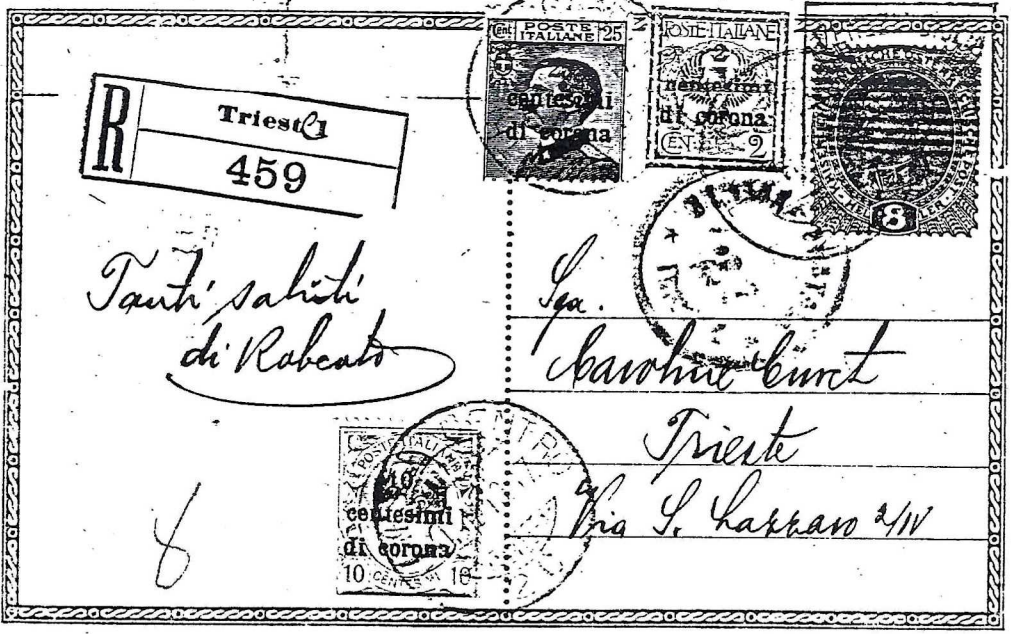 Cent. POSTE ITALIANE 25
centesimi
di corona
POSTE ITALIANE
2
centesimi
di corona
CEN. 2
8
R
Trieste 1
459
Tanti saluti
di Roberto
Sga.
Caroline Curet
Trieste
Via S. Lazzaro 2/IV
POSTE ITALIANE
10
centesimi
di corona
10 CENTESIMI 10
CENTRO
8